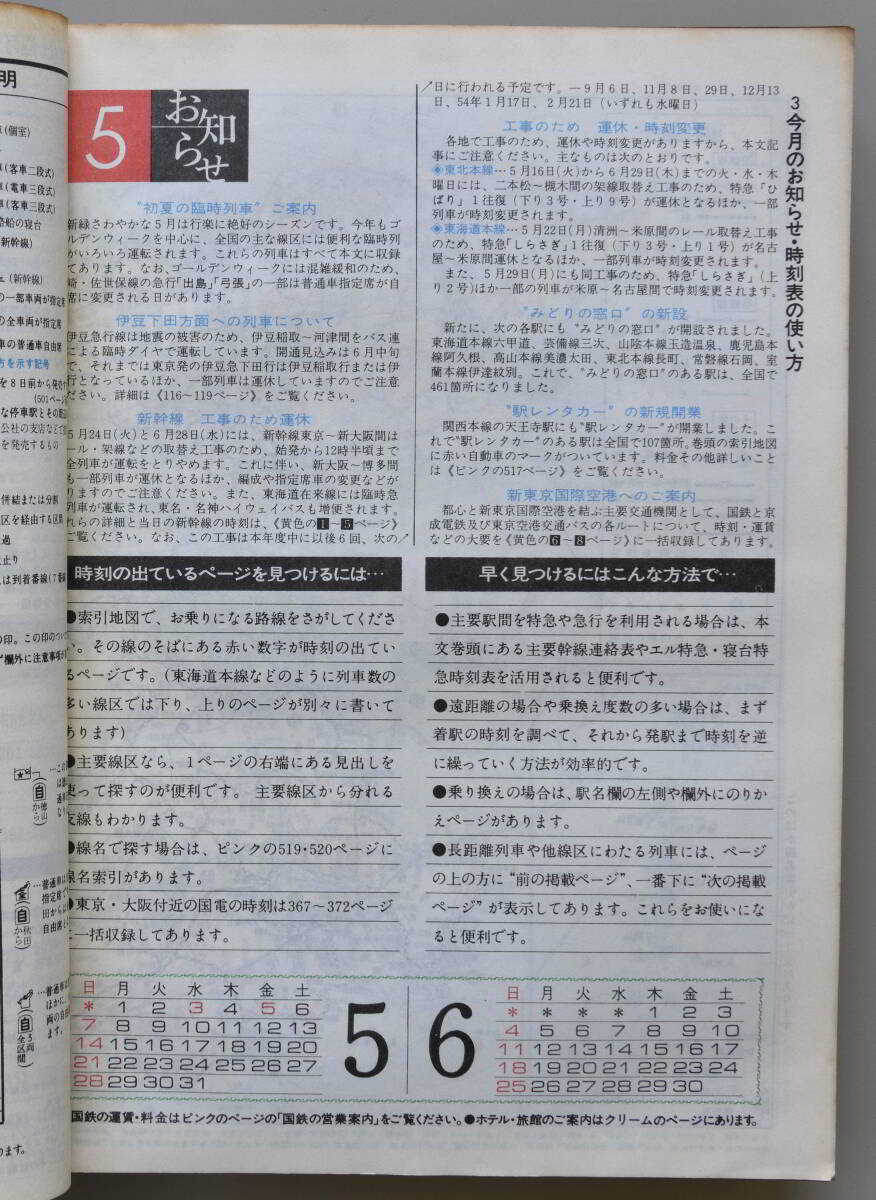 明
(個室)
(客車二段式)
(電車三段式)
(客車三段式)
船の寝台
新幹線)
(新幹線)
の一部車両が指定席
の全車両が指定席
車の普通車自由席
方を示す記号
を8日前から発売
(501ページ
な停車駅とその
公社の支店などで
を発売するもの
併結または分割
区を経由する区間
過
止り
は到着番線(7番線
の印。この印の
欄外に注意事項が
5
お知らせ
“初夏の臨時列車” ご案内
新緑さわやかな5月は行楽に絶好のシーズンです。今年もゴ
ルデンウィークを中心に、全国の主な線区には便利な臨時列
がいろいろ運転されます。これらの列車はすべて本文に収録
てあります。なお、ゴールデンウィークには混雑緩和のため、
崎・佐世保線の急行「出島」「弓張」の一部は普通車指定席が自
席に変更される日があります。
伊豆下田方面への列車について
伊豆急行線は地震の被害のため、伊豆稲取〜河津間をバス連
による臨時ダイヤで運転しています。開通見込みは6月中旬
で、それまでは東京発の伊豆急下田行は伊豆稲取行または伊
行となっているほか、一部列車は運休していますのでご注意
ださい。詳細は《116〜119ページ》をご覧ください。
新幹線 工事のため運休
5月24日(火)と6月28日(水)には、新幹線東京〜新大阪間は
ール・架線などの取替え工事のため、始発から12時半頃まで
全列車が運転をとりやめます。これに伴い、新大阪〜博多間
も一部列車が運休となるほか、編成や指定席車の変更などが
りますのでご注意ください。また、東海道在来線には臨時急
列車が運転され、東名・名神ハイウェイバスも増便されます。
れらの詳細と当日の新幹線の時刻は、《黄色の1〜5ページ》
ご覧ください。なお、この工事は本年度中に以後6回、次の↗
↗日に行われる予定です。—9月6日、11月8日、29日、12月13
日、54年1月17日、2月21日(いずれも水曜日)
工事のため 運休・時刻変更
各地で工事のため、運休や時刻変更がありますから、本文記
事にご注意ください。主なものは次のとおりです。
◈東北本線…5月16日(火)から6月29日(木)までの火・水・木
曜日には、二本松〜槻木間の架線取替え工事のため、特急「ひ
ばり」1往復(下り3号・上り9号)が運休となるほか、一部
列車が時刻変更されます。
◈東海道本線…5月22日(月)清洲〜米原間のレール取替え工事
のため、特急「しらさぎ」1往復(下り3号・上り1号)が名古
屋〜米原間運休となるほか、一部列車が時刻変更されます。
また、5月29日(月)にも同工事のため、特急「しらさぎ」(上
り2号)ほか一部の列車が米原〜名古屋間で時刻変更されます。
“みどりの窓口” の新設
新たに、次の各駅にも “みどりの窓口” が開設されました。
東海道本線六甲道、芸備線三次、山陰本線玉造温泉、鹿児島
本線阿久根、高山本線美濃太田、東北本線長町、常磐線石岡、室
蘭本線伊達紋別。これで、“みどりの窓口” のある駅は、全国で
461箇所になりました。
“駅レンタカー” の新規開業
関西本線の天王寺駅にも“駅レンタカー”が開業しました。こ
れで“駅レンタカー”のある駅は全国で107箇所。巻頭の索引地図
に赤い自動車のマークがついています。料金その他詳しいこと
は《ピンクの517ページ》をご覧ください。
新東京国際空港へのご案内
都心と新東京国際空港を結ぶ主要交通機関として、国鉄と京
成電鉄及び東京空港交通バスの各ルートについて、時刻・運賃
などの大要を《黄色の6〜8ページ》に一括収録してあります。
3 今月のお知らせ・時刻表の使い方
時刻の出ているページを見つけるには…
●索引地図で、お乗りになる路線をさがしてくださ
い。その線のそばにある赤い数字が時刻の出てい
るページです。(東海道本線などのように列車数の
多い線区では下り、上りのページが別々に書いて
あります)
●主要線区なら、1ページの右端にある見出しを
使って探すのが便利です。 主要線区から分れる
支線もわかります。
●線名で探す場合は、ピンクの519・520ページに
線名索引があります。
●東京・大阪付近の国電の時刻は367〜372ページ
に一括収録してあります。
早く見つけるにはこんな方法で…
●主要駅間を特急や急行を利用される場合は、本
文巻頭にある主要幹線連絡表やエル特急・寝台特
急時刻表を活用されると便利です。
●遠距離の場合や乗換え度数の多い場合は、まず
着駅の時刻を調べて、それから発駅まで時刻を逆
に繰っていく方法が効率的です。
●乗り換えの場合は、駅名欄の左側や欄外にのりか
えページがあります。
●長距離列車や他線区にわたる列車には、ページ
の上の方に “前の掲載ページ”、一番下に “次の掲載
ページ” が表示してあります。これらをお使いにな
ると便利です。
日 月 火 水 木 金 土
* 1 2 3 4 5 6
7 8 9 10 11 12 13
14 15 16 17 18 19 20
21 22 23 24 25 26 27
28 29 30 31
5
6
日 月 火 水 木 金 土
* * * * 1 2 3
4 5 6 7 8 9 10
11 12 13 14 15 16 17
18 19 20 21 22 23 24
25 26 27 28 29 30
国鉄の運賃・料金はピンクのページの「国鉄の営業案内」をご覧ください。●ホテル・旅館のご案内はクリームのページにあります。